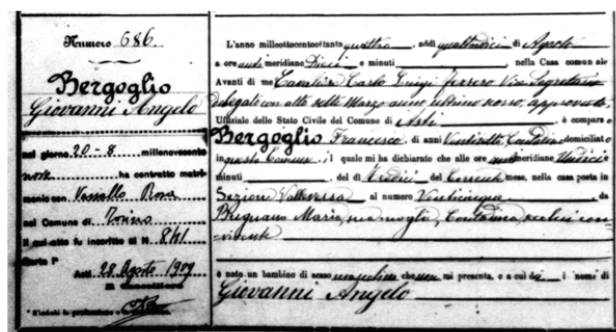 Numero 686.
Bergoglio
Giovanni Angelo
nel giorno 20-8 millenovecento
nove ha contratto matri-
monio con Vassallo Rosa
nel Comune di Torino
il cui atto fu inscritto al N. 841
Parte Iª
Asti 28 Agosto 1909
L'anno milleottocentottanta quattro, addì quattordici di Agosto
a ore anti meridiane Dieci e minuti nella Casa comunale
Avanti di me Carlo Luigi Vice Segretario
delegati con atto sette Marzo anno ultimo scorso, approvato
Uffiziale dello Stato Civile del Comune di Asti è comparso
Bergoglio Francesco di anni Ventisette Contadino domiciliato
in questo Comune, il quale mi ha dichiarato che alle ore meridiane Undici
minuti del dì Tredici del Corrente mese, nella casa posta in
Sezione Valleversa al numero Venticinque da
Bugnano Maria, sua moglie, Contadina, seco lui con-
vivente
è nato un bambino di sesso mascolino che non mi presenta, e a cui dà i nomi di
Giovanni Angelo